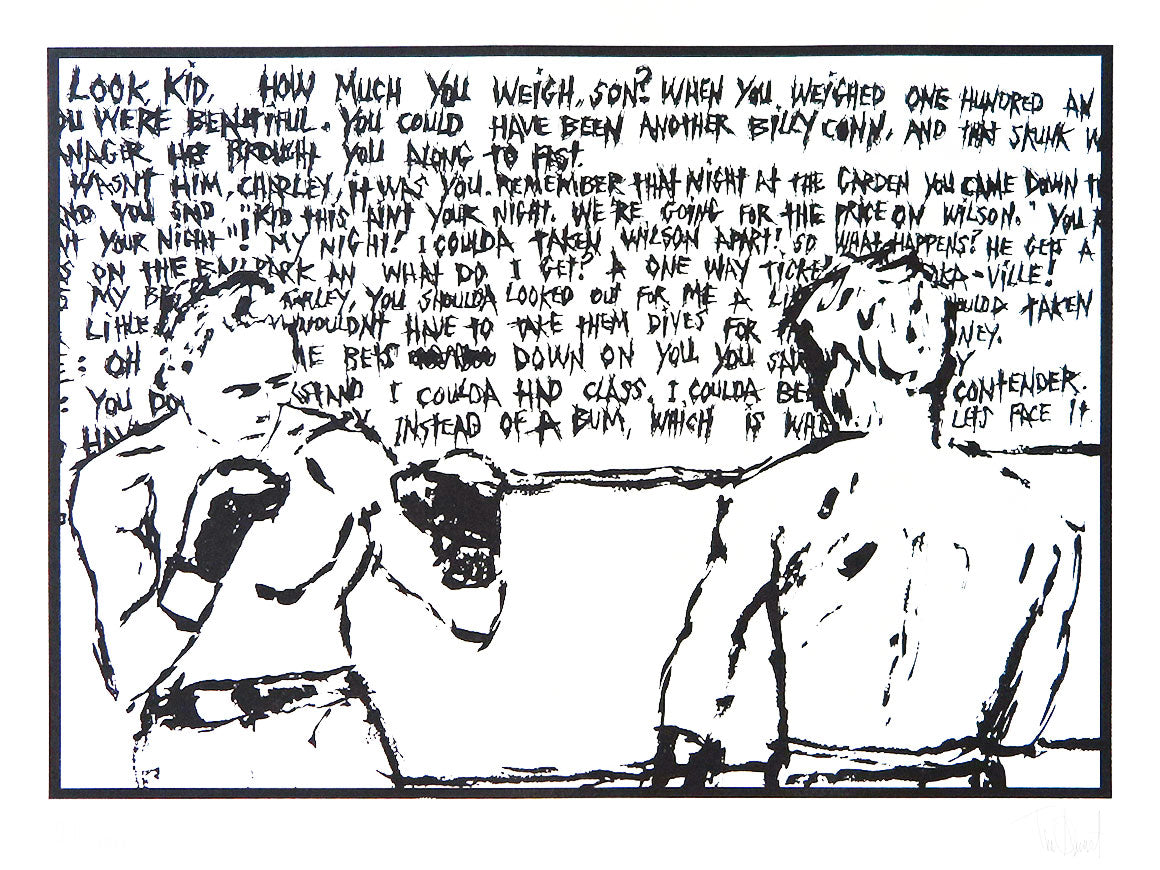 LOOK KID, HOW MUCH YOU WEIGH, SON? WHEN YOU WEIGHED ONE HUNDRED AN
OU WERE BEAUTIFUL. YOU COULD HAVE BEEN ANOTHER BILLY CONN, AND THAT SKUNK W
NAGER HE BROUGHT YOU ALONG TO FAST.
WASNT HIM, CHARLEY, IT WAS YOU. REMEMBER THAT NIGHT AT THE GARDEN YOU CAME DOWN T
ND YOU SAID "KID THIS AINT YOUR NIGHT. WE'RE GOING FOR THE PRICE ON WILSON." YOU
NT YOUR NIGHT"! MY NIGHT! I COULDA TAKEN WILSON APART! SO WHAT HAPPENS? HE GETS A
ON THE BALLPARK AN WHAT DO I GET? A ONE WAY TICKE OKA-VILLE!
MY B ARLEY, YOU SHOULDA LOOKED OUT FOR ME A LI OULD TAKEN
LITTLE WOULDNT HAVE TO TAKE THEM DIVES FOR T NEY.
OH ME BETS DOWN ON YOU YOU SA Y
YOU DO STAND I COULDA HAD CLASS. I COULDA BE CONTENDER.
HAV Y INSTEAD OF A BUM, WHICH IS WHA LETS FACE IT